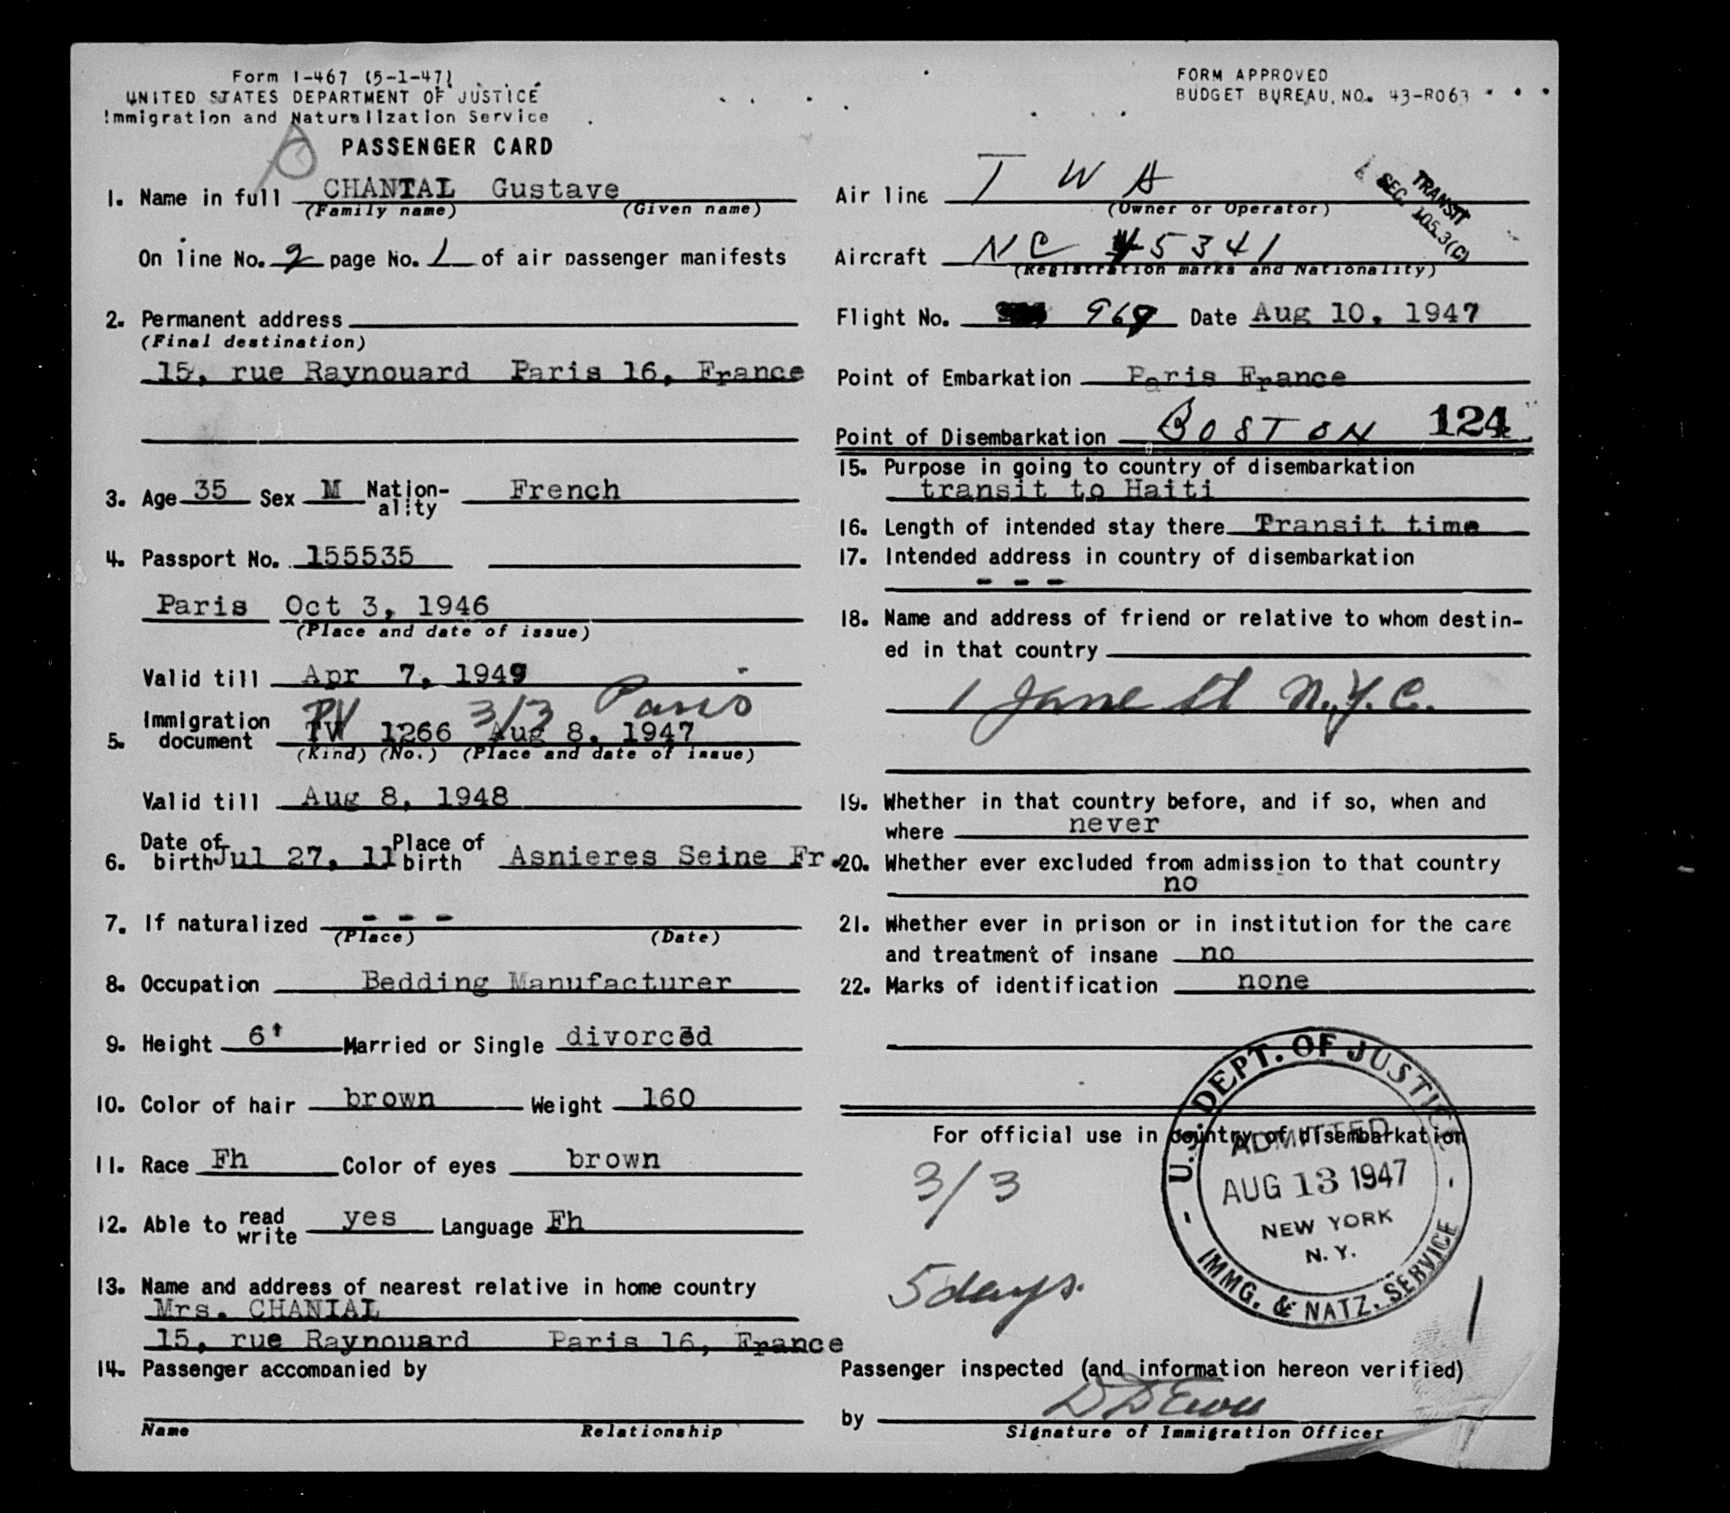 Form I-467 (5-1-47)
UNITED STATES DEPARTMENT OF JUSTICE
Immigration and Naturalization Service
PASSENGER CARD
FORM APPROVED
BUDGET BUREAU, NO. 43-R063
1. Name in full CHANTAL Gustave
(Family name) (Given name)
On line No. 2 page No. 1 of air passenger manifests
2. Permanent address
(Final destination)
15, rue Raynouard Paris 16, France
3. Age 35 Sex M Nation-ality French
4. Passport No. 155535
Paris Oct 3, 1946
(Place and date of issue)
Valid till Apr 7, 1949
PV 3/3 Paris
5. Immigration document TV 1266 Aug 8, 1947
(Kind) (No.) (Place and date of issue)
Valid till Aug 8, 1948
6. Date of birth Jul 27, 11 Place of birth Asnieres Seine Fr.
7. If naturalized - - -
(Place) (Date)
8. Occupation Bedding Manufacturer
9. Height 6' Married or Single divorced
10. Color of hair brown Weight 160
11. Race Fh Color of eyes brown
12. Able to read write yes Language Fh
13. Name and address of nearest relative in home country
Mrs. CHANTAL
15, rue Raynouard Paris 16, France
14. Passenger accompanied by
Name Relationship
Air line T W A
(Owner or Operator)
TRANSIT
SEC. 105.3(C)
Aircraft NC 45341
(Registration marks and Nationality)
Flight No. 969 Date Aug 10, 1947
Point of Embarkation Paris France
Point of Disembarkation BOSTON 124
15. Purpose in going to country of disembarkation
transit to Haiti
16. Length of intended stay there Transit time
17. Intended address in country of disembarkation
- - -
18. Name and address of friend or relative to whom destin-
ed in that country
1 Jane St N.Y.C.
19. Whether in that country before, and if so, when and
where never
20. Whether ever excluded from admission to that country
no
21. Whether ever in prison or in institution for the care
and treatment of insane no
22. Marks of identification none
For official use in country of disembarkation
3/3
5 days.
U.S. DEPT. OF JUSTICE
ADMITTED
AUG 13 1947
NEW YORK
N. Y.
IMMG. & NATZ. SERVICE
Passenger inspected (and information hereon verified)
by
Signature of Immigration Officer